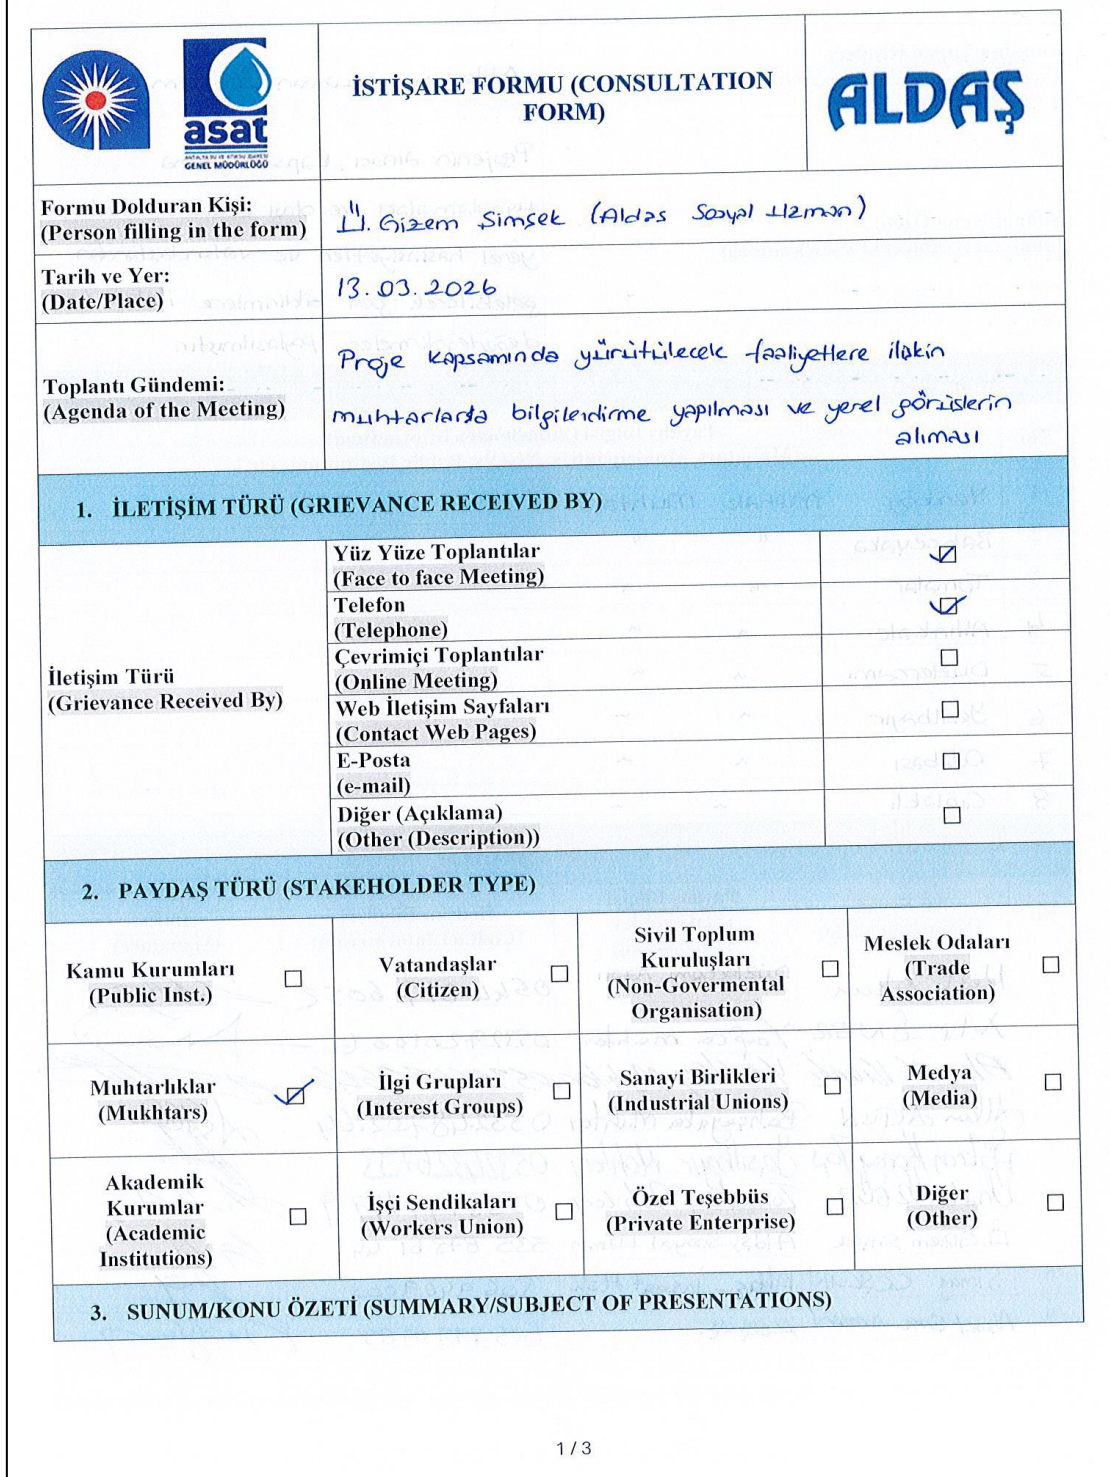 asat
ANTALYA SU VE ATIKSU İDARESİ
GENEL MÜDÜRLÜĞÜ
İSTİŞARE FORMU (CONSULTATION
FORM)
ALDAŞ
Formu Dolduran Kişi:
(Person filling in the form)
Ü. Gizem Şimşek (Aldaş Sosyal Uzman)
Tarih ve Yer:
(Date/Place)
13.03.2026
Toplantı Gündemi:
(Agenda of the Meeting)
Proje kapsamında yürütülecek faaliyetlere ilişkin
muhtarlarda bilgilendirme yapılması ve yerel görüşlerin
alıması
1. İLETİŞİM TÜRÜ (GRIEVANCE RECEIVED BY)
İletişim Türü
(Grievance Received By)
Yüz Yüze Toplantılar
(Face to face Meeting)
Telefon
(Telephone)
Çevrimiçi Toplantılar
(Online Meeting)
Web İletişim Sayfaları
(Contact Web Pages)
E-Posta
(e-mail)
Diğer (Açıklama)
(Other (Description))
2. PAYDAŞ TÜRÜ (STAKEHOLDER TYPE)
Kamu Kurumları
(Public Inst.)
Vatandaşlar
(Citizen)
Sivil Toplum
Kuruluşları
(Non-Govermental
Organisation)
Meslek Odaları
(Trade
Association)
Muhtarlıklar
(Mukhtars)
İlgi Grupları
(Interest Groups)
Sanayi Birlikleri
(Industrial Unions)
Medya
(Media)
Akademik
Kurumlar
(Academic
Institutions)
İşçi Sendikaları
(Workers Union)
Özel Teşebbüs
(Private Enterprise)
Diğer
(Other)
3. SUNUM/KONU ÖZETİ (SUMMARY/SUBJECT OF PRESENTATIONS)
1 / 3